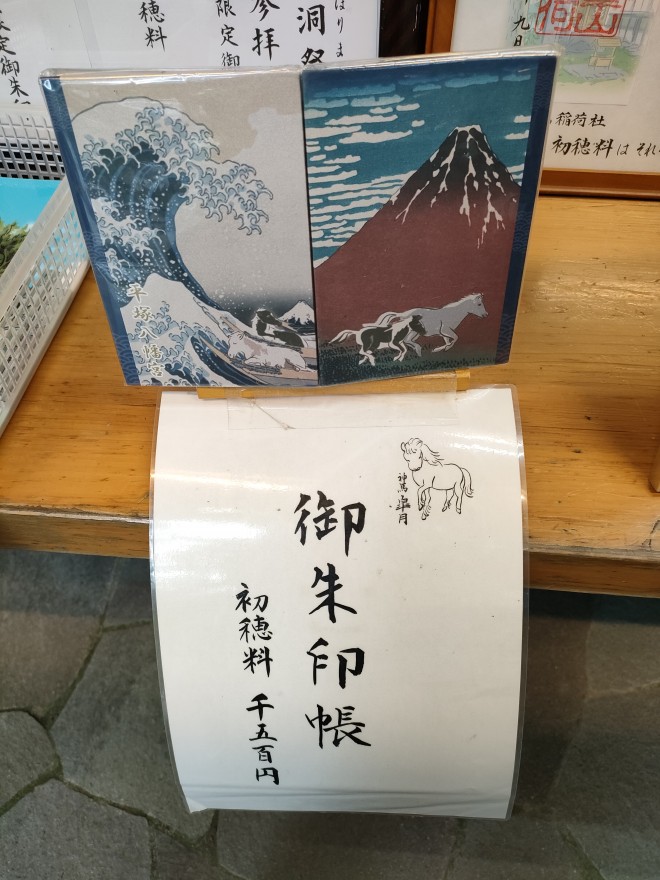 参拝
限定御
穂料
定御朱印
九日
稲荷社
初穂料は それ
平塚八幡宮
神馬 皐月
御朱印帳
初穂料 千五百円